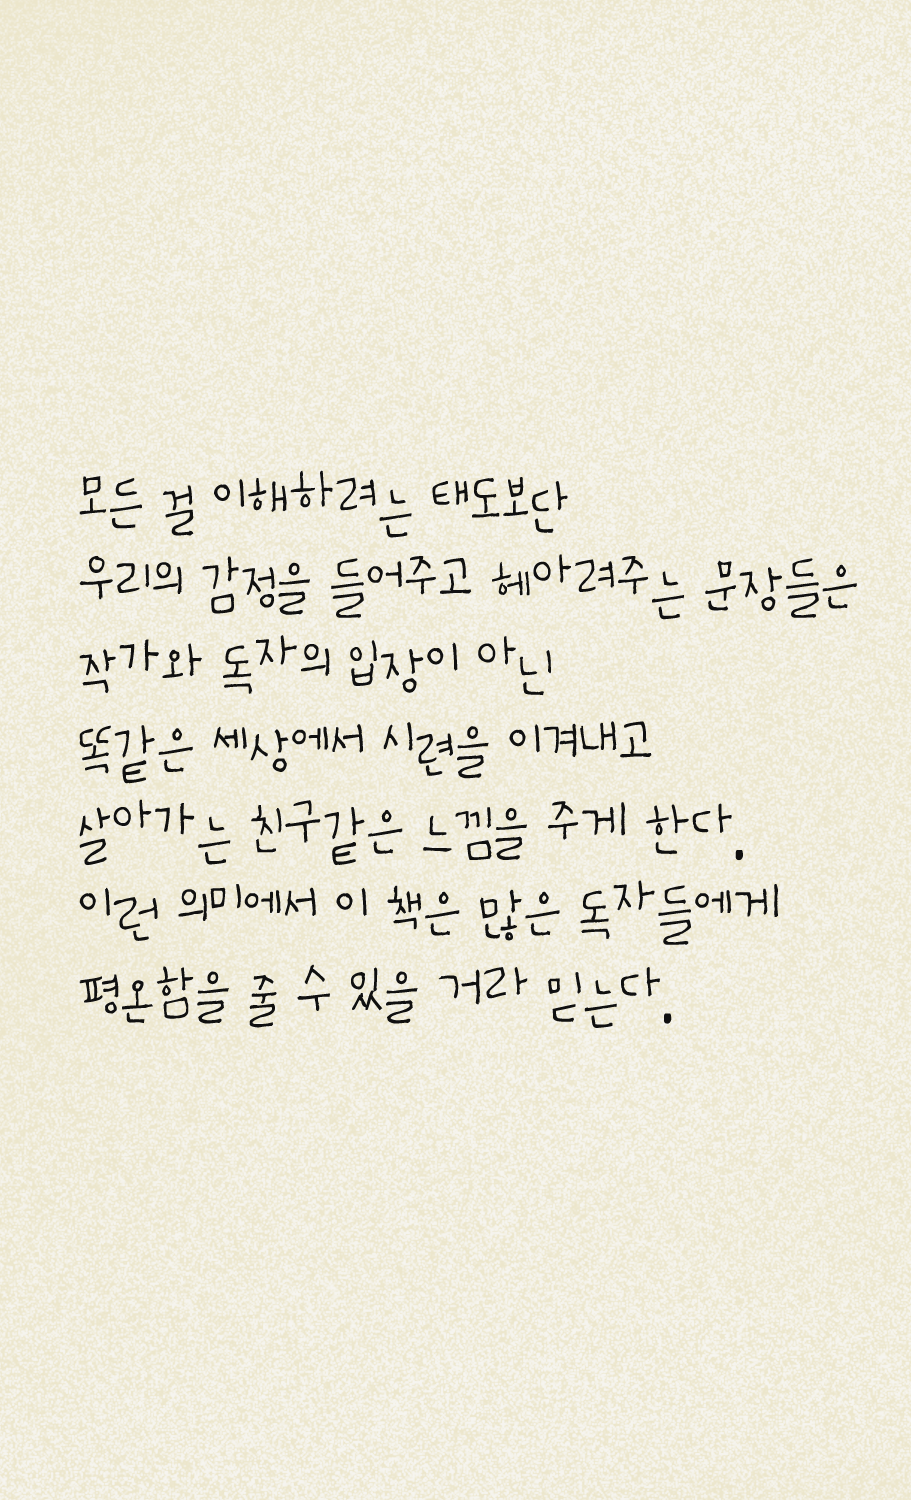 모든 걸 이해하려는 태도보단
우리의 감정을 들어주고 헤아려주는 문장들은
작가와 독자의 입장이 아닌
똑같은 세상에서 시련을 이겨내고
살아가는 친구같은 느낌을 주게 한다.
이런 의미에서 이 책은 많은 독자들에게
평온함을 줄 수 있을 거라 믿는다.